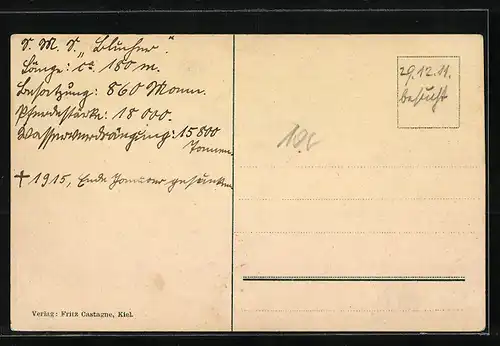 S. M. S. „Blücher".
Länge: ca. 150 m.
Besatzung: 860 Mann.
Pferdestärke: 18 000.
Wasserverdrängung: 15800
Tonnen.
† 1915, Ende Januar gesunken
29.12.11.
besucht
Verlag: Fritz Castagne, Kiel.